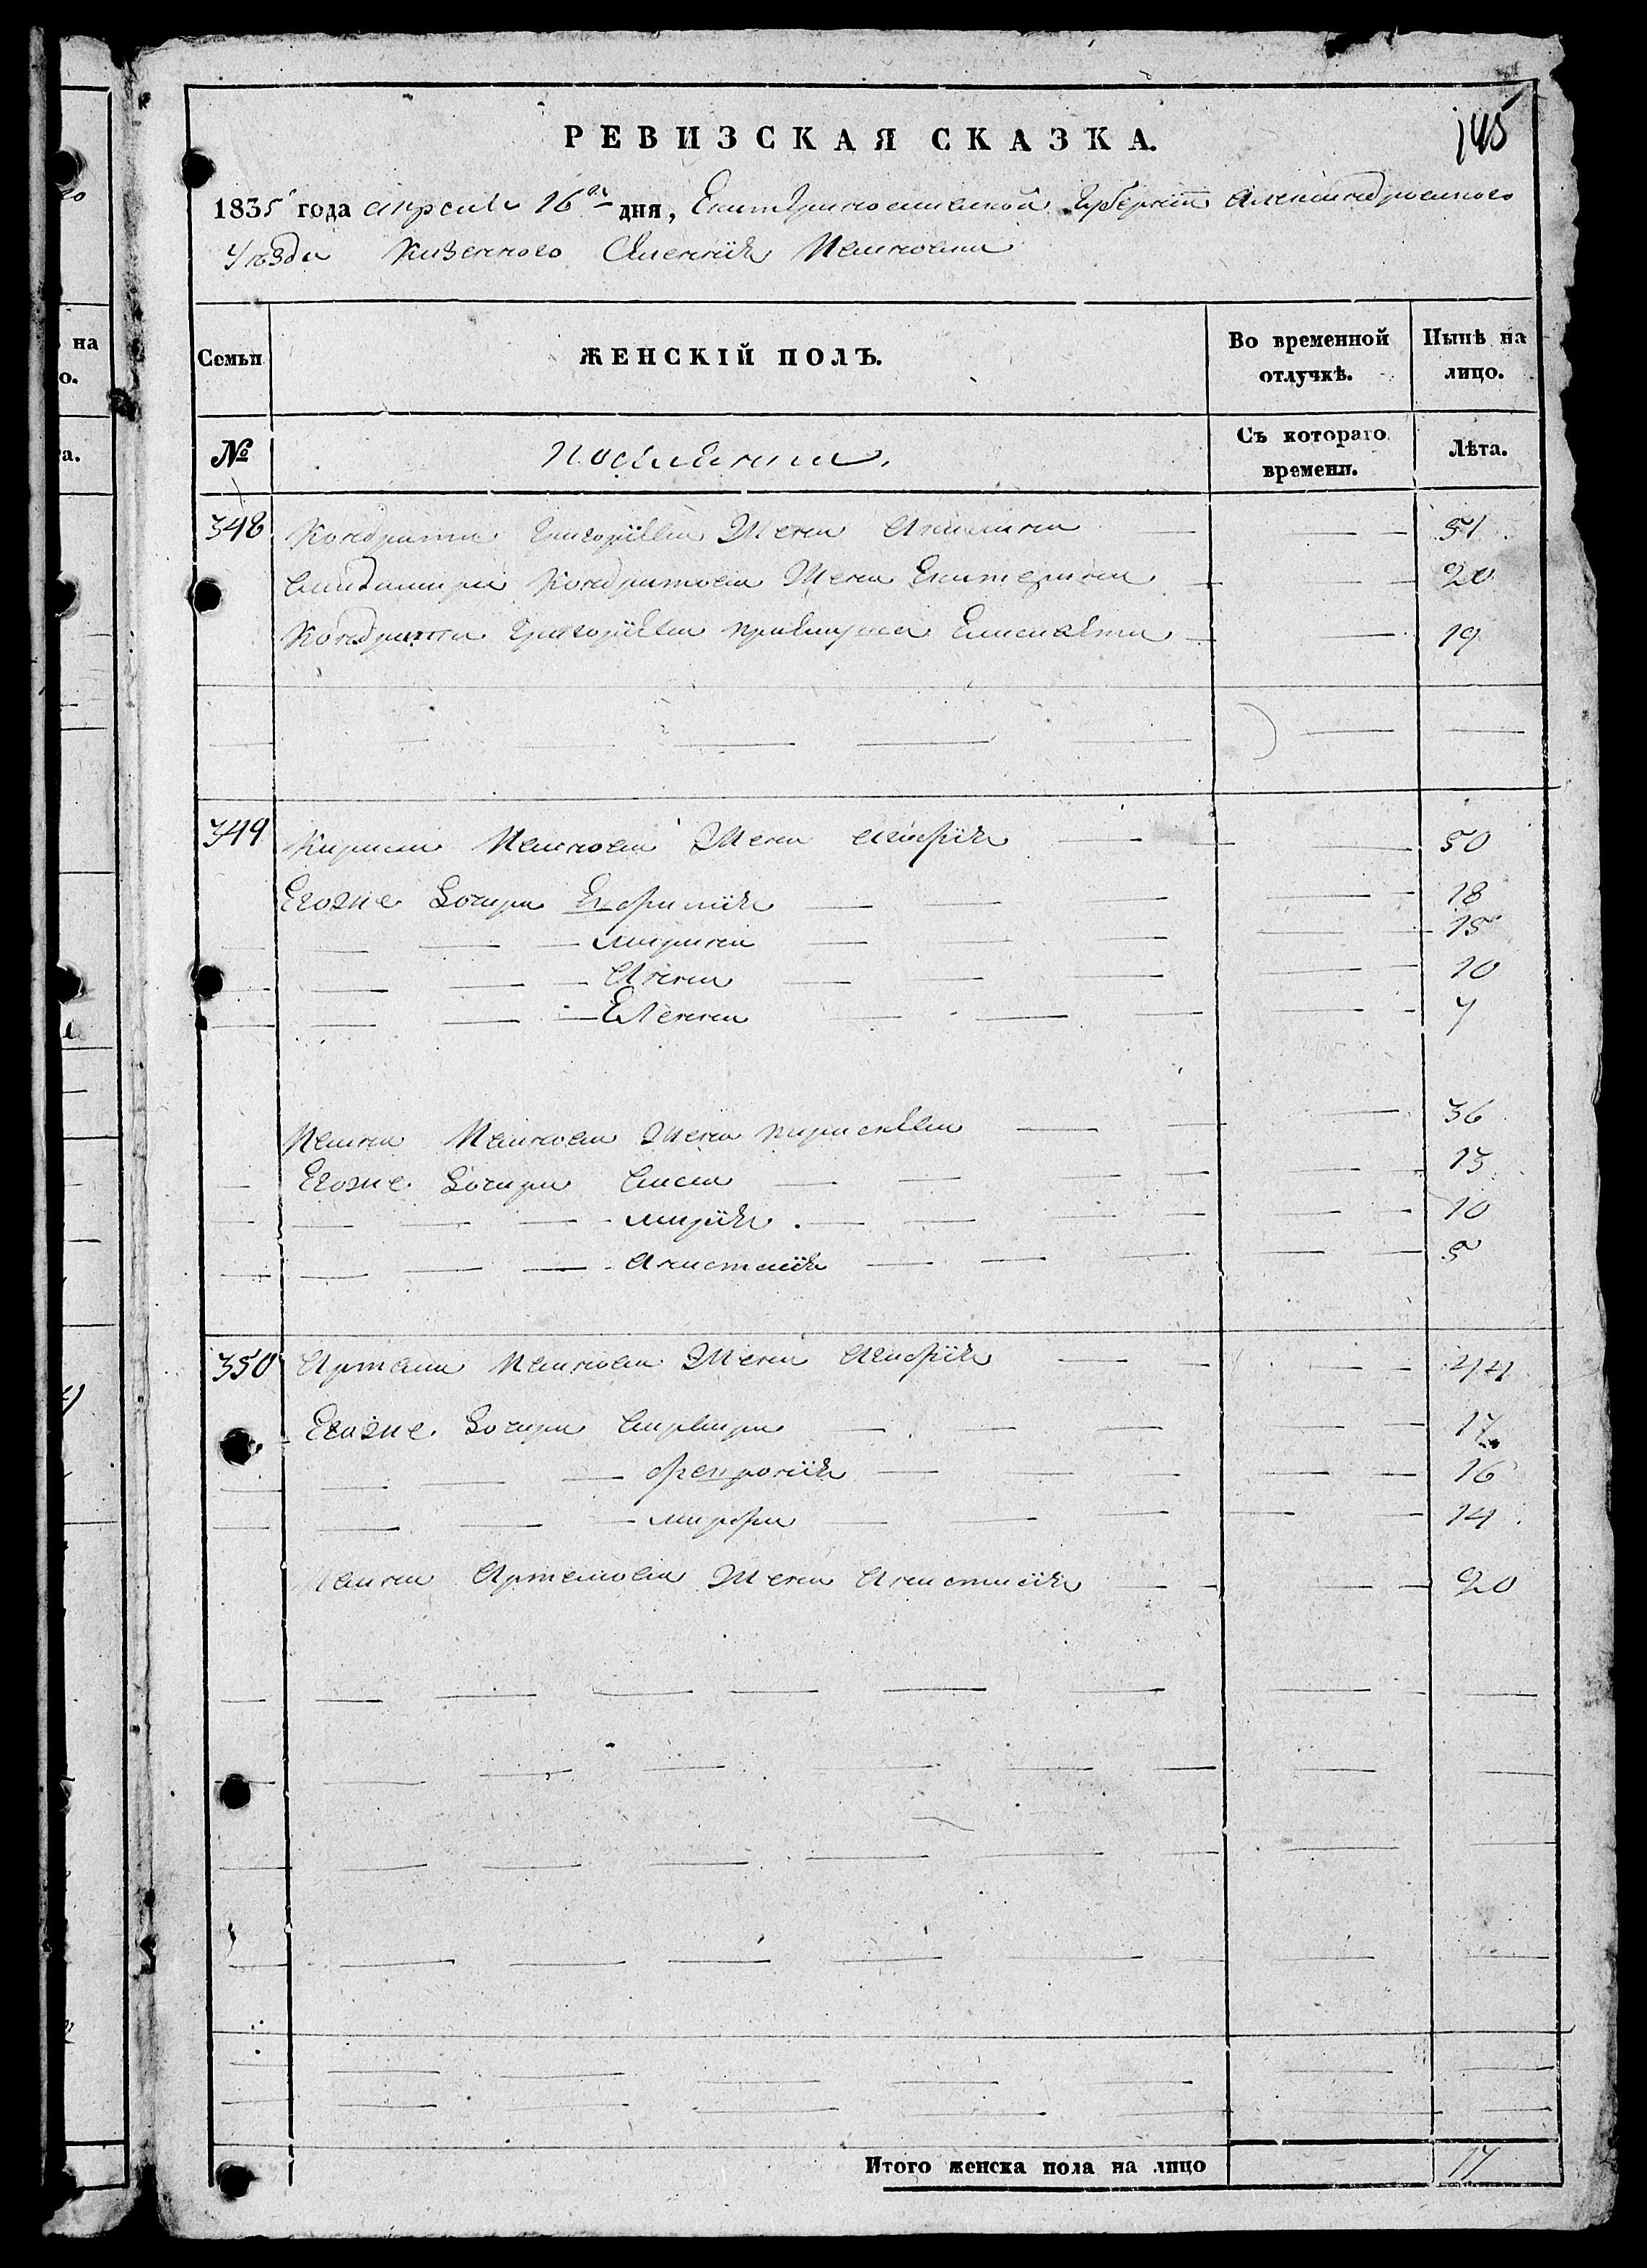 145
РЕВИЗСКАЯ СКАЗКА.
1835 года апреля 16го дня, Екатеринославской Губернии Александровского
Уезда Казенного Селения Ивановка
Семьи
ЖЕНСКІЙ ПОЛЪ.
Во временной отлучкѣ.
Нынѣ на лицо.
№
Поселяни
Съ котораго времени.
Лѣта.
348 Кондрата Григорiева Жена Акилина 51
Кондратова Жена Екатерина 20
Кондрата Григорiева Елисавета 19
349 Кирила Иванова Жена Агафiя 50
Егоже Дочери 18
Марина 15
Анна 10
Еленна 7
Ивана Иванова Жена Парасквва 36
Егоже Дочери Васа 13
Марiя 10
Анастасiя 5
350 Артема Иванова Жена Агафiя 44
Егоже Дочери Варвара 17
Февронiя 16
Марфа 14
Ивана Артемова Жена Анастасiя 20
Итого женска пола на лицо 17
на
о.
а.